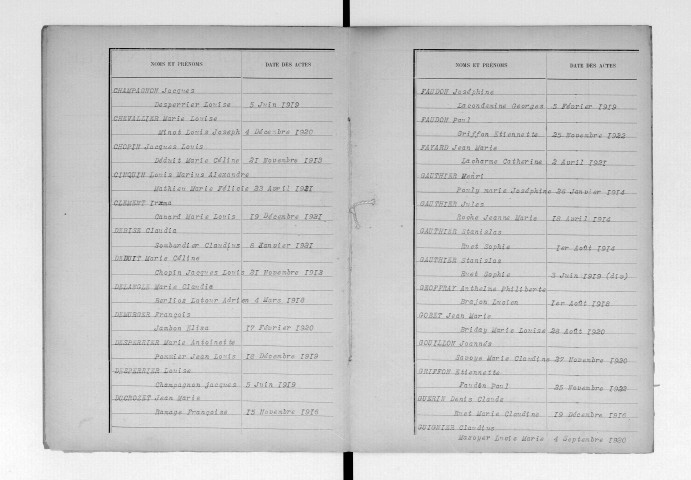 NOMS ET PRENOMS DATE DES ACTES
CHAMPAGNON Jacques
Desperrier Louise 5 Juin 1919
CHEVALLIER Marie Louise
Minot Louis Joseph 4 Décembre 1920
CHOPIN Jacques Louis
Déduit Marie Céline 21 Novembre 1913
CINQUIN Louis Marius Alexandre
Mathieu Marie Félicie 23 Avril 1921
CLEMENT Irma
Canard Marie Louis 19 Décembre 1921
DENISE Claudia
Bombardier Claudius 8 Janvier 1921
DEDUIT Marie Céline
Chopin Jacques Louis 21 Novembre 1913
DELANGLE Marie Claudia
Berlioz Latour Adrien 4 Mars 1916
DEMURGER François
Jambon Elisa 17 Février 1920
DESPERRIER Marie Antoinette
Pannier Jean Louis 12 Décembre 1919
DESPERRIER Louise
Champagnon Jacques 5 Juin 1919
DUCROZET Jean Marie
Ranage Françoise 15 Novembre 1916
NOMS ET PRENOMS DATE DES ACTES
FAUDON Joséphine
Lacondemine Georges 5 Février 1919
FAUDON Paul
Griffon Etiennette 25 Novembre 1922
FAYARD Jean Marie
Lacharme Catherine 2 Avril 1921
GAUTHIER Henri
Pauly marie Joséphine 24 Janvier 1914
GAUTHIER Jules
Roche Jeanne Marie 18 Avril 1914
GAUTHIER Stanislas
Ruet Sophie 1er Août 1914
GAUTHIER Stanislas
Ruet Sophie 3 Juin 1919 (div)
GEOFFRAY Anthelme Philiberte
Drajon Lucien 1er Août 1916
GOBET Jean Marie
Briday Marie Louise 28 Août 1920
GOUILLON Joannès
Savoye Marie Claudine 27 Novembre 1920
GRIFFON Etiennette
Faudon Paul 25 Novembre 1922
GUERIN Denis Claude
Ruet Marie Claudine 19 Décembre 1916
GUIGNIER Claudius
Mazoyer Louis Marie 4 Septembre 1920